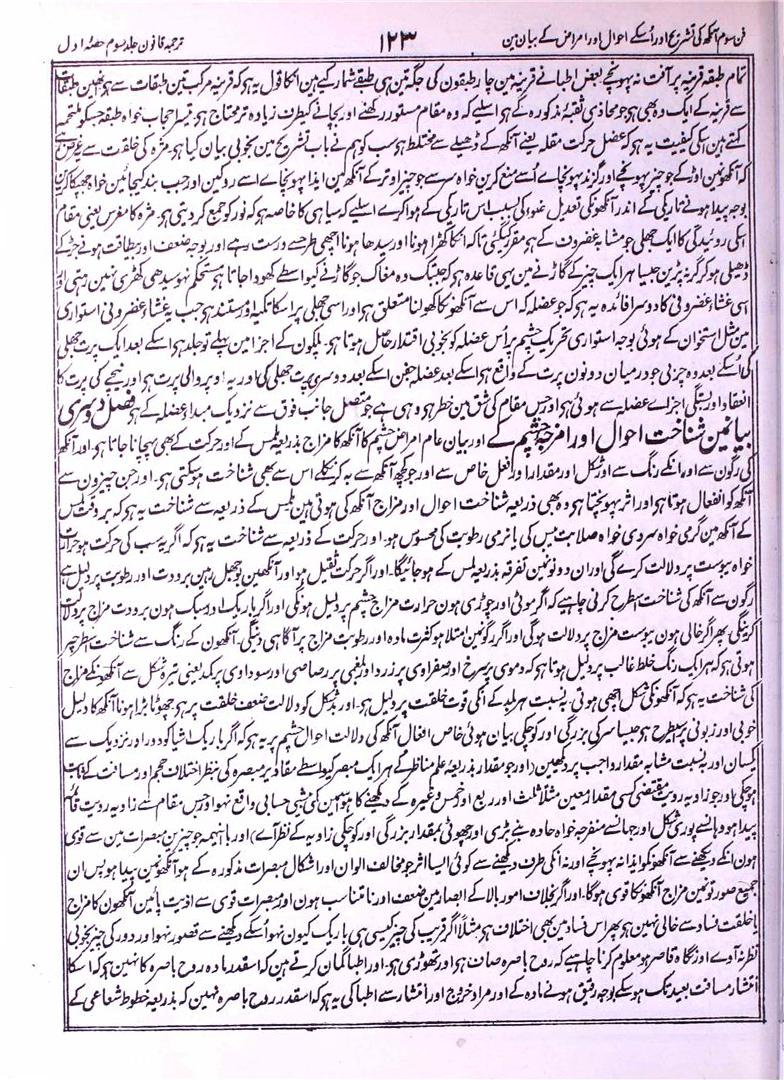 فن سوم آنکھ کی تشریح اور اُسکے احوال اور امراض کے بیان مین ۱۲۳ ترجمہ قانون جلد سوم حصہ اول
تمام طبقہ قرنیہ پر آفت نہ پہونچے بعض اطبا نے قرنیہ مین چار طبقون کی جگہ تین ہی طبقے شمار کیے ہین انکا قول یہ ہو کہ قرنیہ مرکب تین طبقات سے ہو
سے قرنیہ کے ایک وہ بھی ہو جو محاذی ثقبۂ مذکورہ کے ہو اسلیے کہ وہ مقام مستور رکھنے اور بچانے کیطرف زیادہ تر محتاج ہو تیسرا حجاب خواہ طبقہ جسکو ملتحمہ
کہتے ہین اسکی کیفیت یہ ہو کہ عضل حرکت مقلہ یعنے آنکھ کے ڈھیلے سے مختلط ہو سب کو ہم نے باب تشریح مین بخوبی بیان کیا ہو۔ مژہ کی خلقت سے غرض یہ ہے
کہ آنکھ مین اوڑ کے جو چیز پہونچے اور گزند پہونچاے اُسے منع کرین خواہ سر سے جو چیز اوتر کے آنکھ مین ایذا پہونچاے اسے روکین اور جب بند کیجائین خواہ
بوجہ پیدا ہونے تاریکی کے اندر آنکھونکی تعدیل ضوء کی بسبب اس تاریکی کے ہوا کرے اسلیے کہ سیاہی کا خاصہ ہو کہ نور کو جمع کر دیتی ہو۔ مژہ کا مغرس یعنی مقام
اسکی روئیدگی کا ایک جھلی جو مشابہ غضروف کے ہو مقرر کیگئی تاکہ انکا کھڑا ہونا اور سیدھا ہونا اچھی طرح سے درست رہے اور بوجہ ضعف اور بیطاقت ہونے جڑ کے
ڈھیلی ہو کر گر نہ پڑین جیسا ہر ایک چیز کے گاڑنے مین یہی قاعدہ ہو کہ جبتک وہ مغاک جو گاڑنے کیواسطے کھودا جاتا ہو مستحکم نہو سیدھی کھڑی نہین رہتی اور
اسی غشاء غضروفی کا دوسرا فائدہ یہ ہو کہ جو عضلہ کہ اس سے آنکھ کا کھولنا متعلق ہو اور اسی جھلی پر اسکا تکیہ اور مستند ہو جب یہ غشاء غضروفی استواری
مین مثل استخوان کے ہوئی بوجہ استواری تحریک چشم پر اُس عضلہ کو بخوبی اقتدار حاصل ہوتا ہو۔ پلکون کے اجزا مین پہلے تو جلد ہو اسکے بعد ایک پرت جھلی
کی اُسکے بعد وہ چربی جو درمیان دونون پرت کے واقع ہو اسکے بعد عضلہ جفن اسکے بعد دوسری پرت جھلی کی اور یہ اوپر والی پرت ہو اور نیچے کی پرت کا
انعقاد اور بستگی اجزاے عضلہ سے ہوئی ہو اور جس مقام کی شق مین خطر ہو وہ ہی ہے جو متصل جانب فوق سے نزدیک مبدا عضلہ کے ہو فصل دوسری
بیان مین شناخت احوال اور امزجہ چشم کے اور بیان عام امراض چشم کا آنکھ کا مزاج بذریعہ لمس کے اور حرکت کے بھی پہچانا جاتا ہو۔ اور آنکھ
کی رگون سے اور انکے رنگ سے اور شکل اور مقدار اور افعل خاص سے اور جو کچھ آنکھ سے بہ کر نکلے اس سے بھی شناخت ہو سکتی ہو۔ اور جن چیزون سے
آنکھ کو انفعال ہوتا ہو اور اثر پہونچتا ہو وہ بھی ذریعہ شناخت احوال اور مزاج آنکھ کی ہوتی ہین لمس کے ذریعہ سے شناخت یہ ہو کہ بروقت لمس
کے آنکھ مین گرمی خواہ سردی خواہ صلابت یبس کی یا نرمی رطوبت کی محسوس ہو۔ اور حرکت کے ذریعہ سے شناخت یہ ہو کہ اگر یہ سب کی حرکت ہو حرارت
خواہ یبوست پر دلالت کرے گی اور ان دونون مین تفرقہ بذریعہ لمس کے ہو جائیگا۔ اور اگر حرکت ثقیل ہو اور آنکھین بوجھل رہین برودت اور رطوبت پر دلیل ہے
رگون سے آنکھ کی شناخت اسطرح کرنی چاہیے کہ اگر موٹی اور چوڑی ہون حرارت مزاج چشم پر دلیل ہونگی اور اگر باریک اور سبک ہون برودت مزاج پر دلالت
کرینگی پھر اگر خالی ہون یبوست مزاج پر دلالت ہوگی اور اگر رگونمین امتلا ہو کثرت مادہ اور رطوبت مزاج پر آگاہی دینگی۔ آنکھون کے رنگ سے شناخت اسطرحپر
ہوتی ہو کہ ہر ایک رنگ خلط غالب پر دلیل ہوتا ہو کہ دموی پر سرخ اور صفراوی پر زرد اور بلغمی پر رصاصی اور سوداوی پر کمد یعنی تیرہ شکل سے آنکھ کے مزاج
کی شناخت یہ ہو کہ آنکھونکی شکل اچھی ہوتی بہ نسبت ہر ایک کے انکی قوت خلقت پر دلیل ہو۔ اور بد شکل کو دلالت ضعف خلقت پر ہو چھوٹا بڑا ہونا آنکھ کا دلیل
خوبی اور زبونی پر اسیطرح ہو جیسا سر کی بزرگی اور کوچکی بیان ہوئی خاص افعال آنکھ کی دلالت احوال چشم پر یہ ہو کہ اگر باریک اشیا کو دور اور نزدیک سے
یکسان اور بہ نسبت مشابہ مقدار واجب پر دیکھین (اور جو مقدار بذریعہ علم مناظر کے ہر ایک مبصر کیواسطے مقادیر مبصرہ کی بنظر اختلاف حجم اور مسافت کے ثابت
ہو چکی اور جو زاویہ رویت مقتضی کسی مقدار معین مثلاً ثلث اور ربع اور خمس وغیرہ کے دیکھنے کا ہو سہین کمی بیشی حسابی واقع نہو اور جس مقام سے زاویہ رویت قائمہ
پیدا ہو وہانسے پوری شکل اور جہانسے منفرجہ خواہ حادہ بنے بڑی اور چھوٹی بمقدار بزرگی اور کوچکی زاویہ کے نظر آے) اور باینہمہ جو چیزین مبصرات مین سے قوی
ہون انکے دیکھنے سے آنکھ کو ایذا نہ پہونچے اور نہ انکی طرف دیکھنے سے کوئی ایسا اثر جو مخالف الوان اور اشکال مبصرات مذکورہ کے ہو آنکھونمین پیدا ہو پس ان
جمیع صور تونمین مزاج آنکھ کا قوی ہوگا۔ اور اگر بخلاف امور بالا کے ابصار مین ضعف اور نا متناسب ہون اور مبصرات قوی سے اذیت پائین آنکھون کا مزاج
یا خلقت فساد سے خالی نہین ہو پھر اس فساد مین بھی اختلاف ہو مثلاً اگر قریب کی چیز کیسی ہی باریک کیون نہو اُسکے دیکھنے سے قصور نہو اور دور کی چیز بخوبی
نظر نہ آوے اور نگاہ قاصر ہو معلوم کرنا چاہیے کہ روح باصرہ صاف ہو اور تھوڑی ہو۔ اور اطبا گمان کرتے ہین کہ اسقدر مادہ روح باصرہ کا نہین ہو کہ اسکا
انتشار مسافت بعید تک ہو سکے بوجہ رقیق ہونے مادہ کے اور مراد خروج اور انتشار سے اطبا کی یہ ہو کہ اسقدر روح باصرہ نہین کہ بذریعہ خطوط شعاعی کے